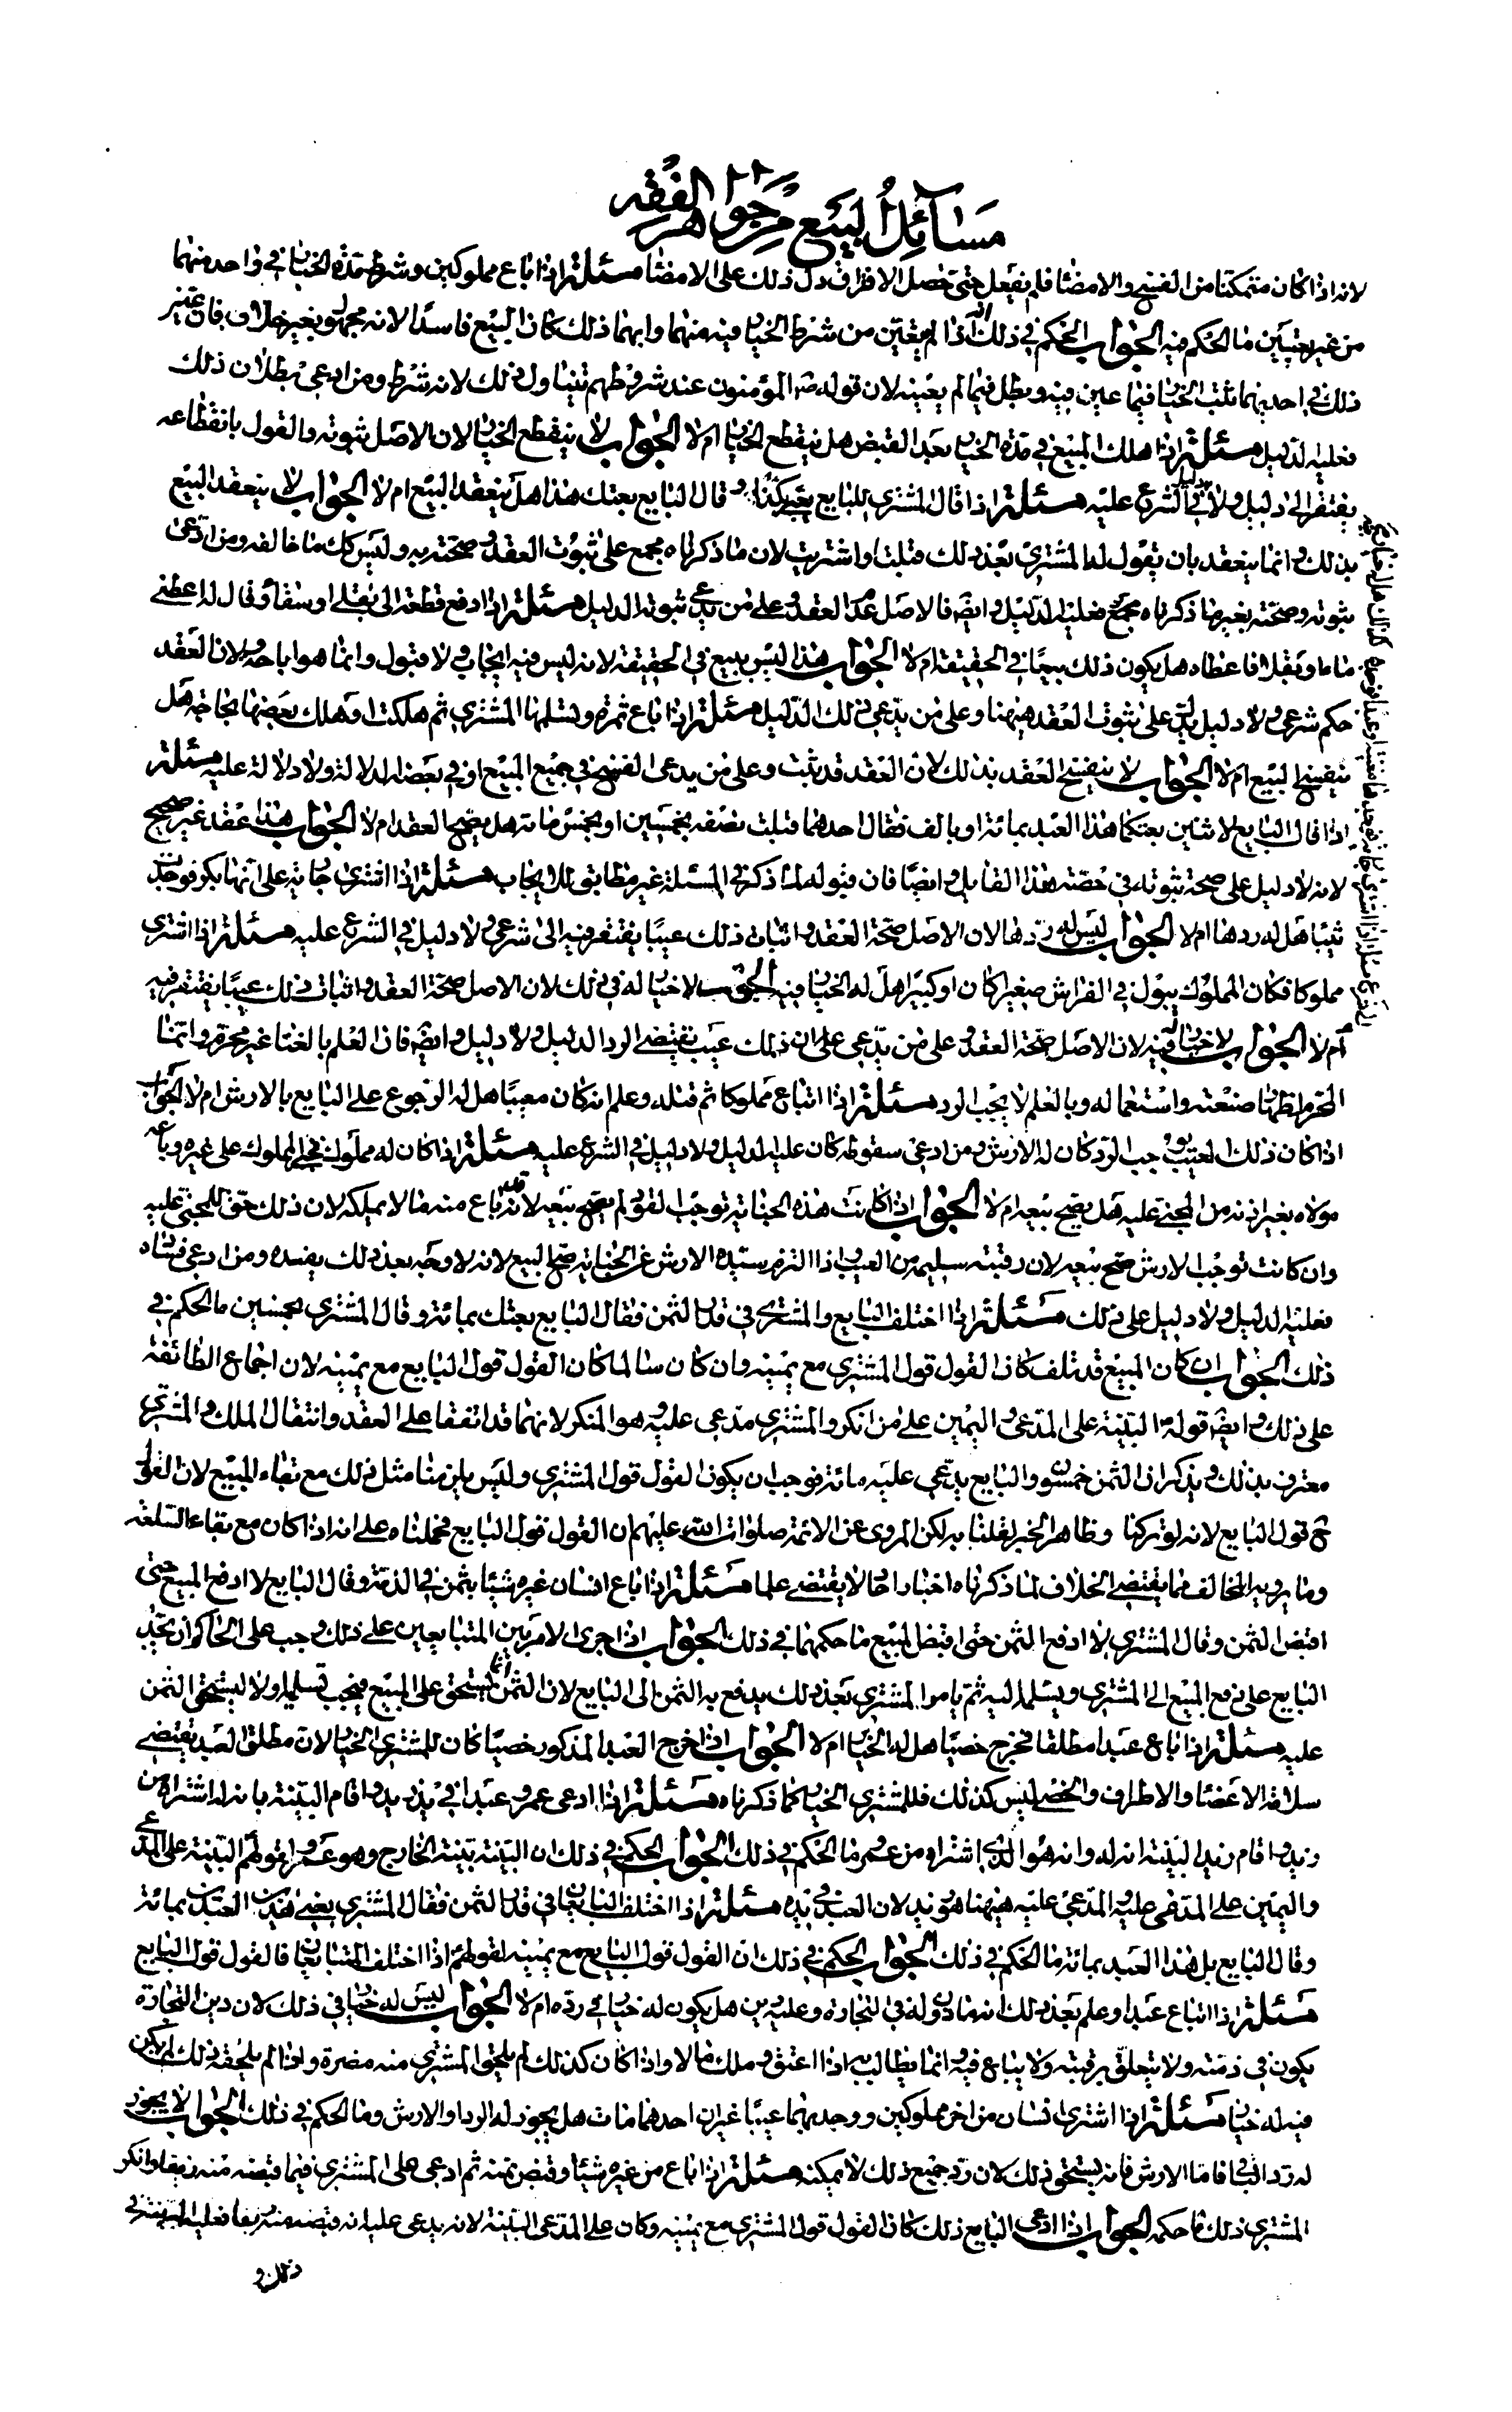 مسائل البيع من جواهر الفقه
لانه اذا كان متمكنا من الفسخ والامضاء فلم يفعل حتى حصل الافتراق دل ذلك على الامضاء مسئلة اذا باع مملوكين وشرط مدة الخيار في واحد منهما
من غير تعيين ما الحكم فيه الجواب الحكم في ذلك انه اذا لم يتعين من شرط الخيار فيه منهما وابهما ذلك كان البيع فاسدا لانه مجهول بغير خلاف فان عين
ذلك في احديهما ثبت الخيار فيما عين فيه وبطل فيما لم يعينه لان قوله ص المؤمنون عند شروطهم تتناول ذلك لانه شرط ومن ادعى بطلان ذلك
فعليه الدليل مسئلة اذا هلك المبيع في مدة الخيار بعد القبض هل ينقطع الخيار ام لا الجواب لا ينقطع الخيار لان الاصل ثبوته والقول بانقطاعه
يفتقر الى دليل ولا دليل في الشرع عليه مسئلة اذا قال المشتري للبايع بعني كذا وقال البايع بعتك هذا هل ينعقد البيع ام لا الجواب لا ينعقد البيع
بذلك وانما ينعقد بان يقول له المشتري بعد ذلك قبلت او اشتريت لان ما ذكرناه مجمع على ثبوت العقد وصحته به وليس كك ما خالفه ومن ادعى
ثبوته وصحته بغير ما ذكرناه مجمع فعليه الدليل وايضا فالاصل عدم العقد وعلى من يدعي ثبوته الدليل مسئلة اذا دفع قطعة الى بقلي او سقاء وقال له اعطني
ماء او بقلا فاعطاه هل يكون ذلك بيعا في الحقيقة ام لا الجواب هذا ليس ببيع في الحقيقة لانه ليس فيه ايجاب ولا قبول وانما هو اباحة ولان العقد
حكم شرعي ولا دليل يدل على ثبوت العقد هيهنا وعلى من يدعي ذلك الدليل مسئلة اذا باع ثمرة وتسلمها المشتري ثم هلكت او هلك بعضها بجائحة هل
ينفسخ البيع ام لا الجواب لا ينفسخ العقد بذلك لان العقد قد ثبت وعلى من يدعى الفسخ في جميع المبيع او في بعضه الدلالة ولا دلالة عليه مسئلة
اذا قال البايع لاثنين بعتكما هذا العبد بمائة او بالف فقال احدهما قبلت نصفه بخمسين او بخمس مائة هل يصح العقد ام لا الجواب هذا عقد غير صحيح
لانه لا دليل على صحة ثبوته في حصته هذا القابل وايضا فان قبوله لما ذكر في المسئلة غير مطابق للايجاب مسئلة اذا اشترى جارية على انها بكر فوجدت
ثيبا هل له ردها ام لا الجواب ليس له ردها لان الاصل صحة العقد واثبات ذلك عيبا يفتقر فيه الى شرعي ولا دليل في الشرع عليه مسئلة اذا اشترى
مملوكا فكان المملوك يبول في الفراش صغيرا كان او كبيرا هل له الخيار فيه الجواب لا خيار له في ذلك لان الاصل صحة العقد واثبات ذلك عيبا يفتقر فيه
ام لا الجواب لا خيار له فيه لان الاصل صحة العقد وعلى من يدعي على ان ذلك عيب يقتضي الرد الدليل ولا دليل وايضا فان العلم بالغناء غير محرم وانما
المحرم اظهار صنعته واستعماله وبالعلم لا يجب الرد مسئلة اذا ابتاع مملوكا ثم قتله وعلم انه كان معيبا هل له الرجوع على البايع بالارش ام لا الجواب
اذا كان ذلك العيب يوجب الرد كان له الارش ومن ادعى سقوطه كان عليه الدليل ولا دليل في الشرع عليه مسئلة اذا كان له مملوك فجنى المملوك على غيره وباعه
مولاه بغير اذنه من المجنى عليه هل يصح بيعه ام لا الجواب اذا كانت هذه الجناية توجب القود لم يصح بيعه لانه قد باع منه ما لا يملكه لان ذلك حق للمجنى عليه
وان كانت توجب الارش صح بيعه لان رقبته سليمة من العيب اذا التزم سيده الارش عن الجناية صح البيع لانه لا وجه بعد ذلك يفسده ومن ادعى فساده
فعليه الدليل ولا دليل على ذلك مسئلة اذا اختلف البايع والمشتري في قدر الثمن فقال البايع بعتك بمائة وقال المشتري بخمسين ما الحكم في
ذلك الجواب ان كان المبيع قد تلف كان القول قول المشتري مع يمينه وان كان سالما كان القول قول البايع مع يمينه لان اجماع الطائفة
على ذلك وايضا قوله ص البينة على المدعي واليمين على من انكر والمشتري مدعى عليه وهو المنكر لانهما قد اتفقا على العقد وانتقال الملك والمشتري
معترف بذلك ويذكر ان الثمن خمسون والبايع يدعي عليه مائة فوجب ان يكون القول قول المشتري وليس يلزمنا مثل ذلك مع بقاء المبيع لان القول
مع قول البايع لانه لو تركنا وظاهر الخبر لقلنا به لكن المروى عن الائمة صلوات الله عليهم ان القول قول البايع فحملناه على انه اذا كان مع بقاء السلعة
وما يرويه المخالف مما يقتضي الخلاف لما ذكرناه اخبار احاد لا يقتضي علما مسئلة اذا باع انسان غيره شيئا بثمن في الذمة وقال البايع لا ادفع المبيع حتى
اقبض الثمن وقال المشتري لا ادفع الثمن حتى اقبض المبيع ما حكمهما في ذلك الجواب اذا جرى الامر بين المتبايعين على ذلك وجب على الحاكم ان يجبر
البايع على دفع المبيع الى المشتري ويسلمه اليه ثم يامر المشتري بعد ذلك يدفع به الثمن الى البايع لان الثمن انما يستحق على المبيع فيجب تسليمه اولا ليستحق الثمن
عليه مسئلة اذا باع عبدا مطلقا فخرج خصيا هل له الخيار ام لا الجواب اذا خرج العبد المذكور خصيا كان للمشتري الخيار لان مطلق العبد يقتضي
سلامة الاعضاء والاطراف والخصى ليس كذلك فللمشتري الخيار كما ذكرناه مسئلة اذا ادعى عمرو عبدا في يد زيد واقام البينة بانه اشتراه من
زيد واقام زيد البينة انه له وانه هو الذي اشتراه من عمرو ما الحكم في ذلك الجواب الحكم في ذلك ان البينة بينة الخارج وهو عمرو لقولهم البينة على المدعي
واليمين على المدعى عليه والمدعى عليه هيهنا هو زيد لان العبد في يده مسئلة اذا اختلف المتبايعان في قدر الثمن فقال المشتري بعني هذين العبدين بمائة
وقال البايع بل هذا العبد بمائة ما الحكم في ذلك الجواب الحكم في ذلك ان القول قول البايع مع يمينه لقولهم اذا اختلف المتبايعان فالقول قول البايع
مسئلة اذا ابتاع عبدا وعلم بعد ذلك انه ماذون له في التجارة وعليه دين هل يكون له خيار في رده ام لا الجواب ليس له خيار في ذلك لان دين التجارة
يكون في ذمته ولا يتعلق برقبته ولا يباع فيه وانما يطالب به اذا اعتق وملك مالا واذا كان كذلك لم يلحق المشتري منه مضرة واذا لم يلحقه ذلك لم يكن
فيه له خيار مسئلة اذا اشترى انسان من اخر مملوكين ووجد بهما عيبا غير ان احدهما مات هل يجوز له الرد او الارش وما الحكم في ذلك الجواب لا يجوز
له رد الباقي فاما الارش فانه يستحق ذلك لان رد جميع ذلك لا يمكنه مسئلة اذا باع من غيره شيئا وقبض ثمنه ثم ادعى على المشتري فيما قبضه منه زيفا وانكر
المشتري ذلك ما حكمه الجواب اذا ادعى البايع ذلك كان القول قول المشتري مع يمينه وكان على المدعى البينة لانه يدعى عليه انه قبضه منه زيفا فعليه البينة في
ذلك و